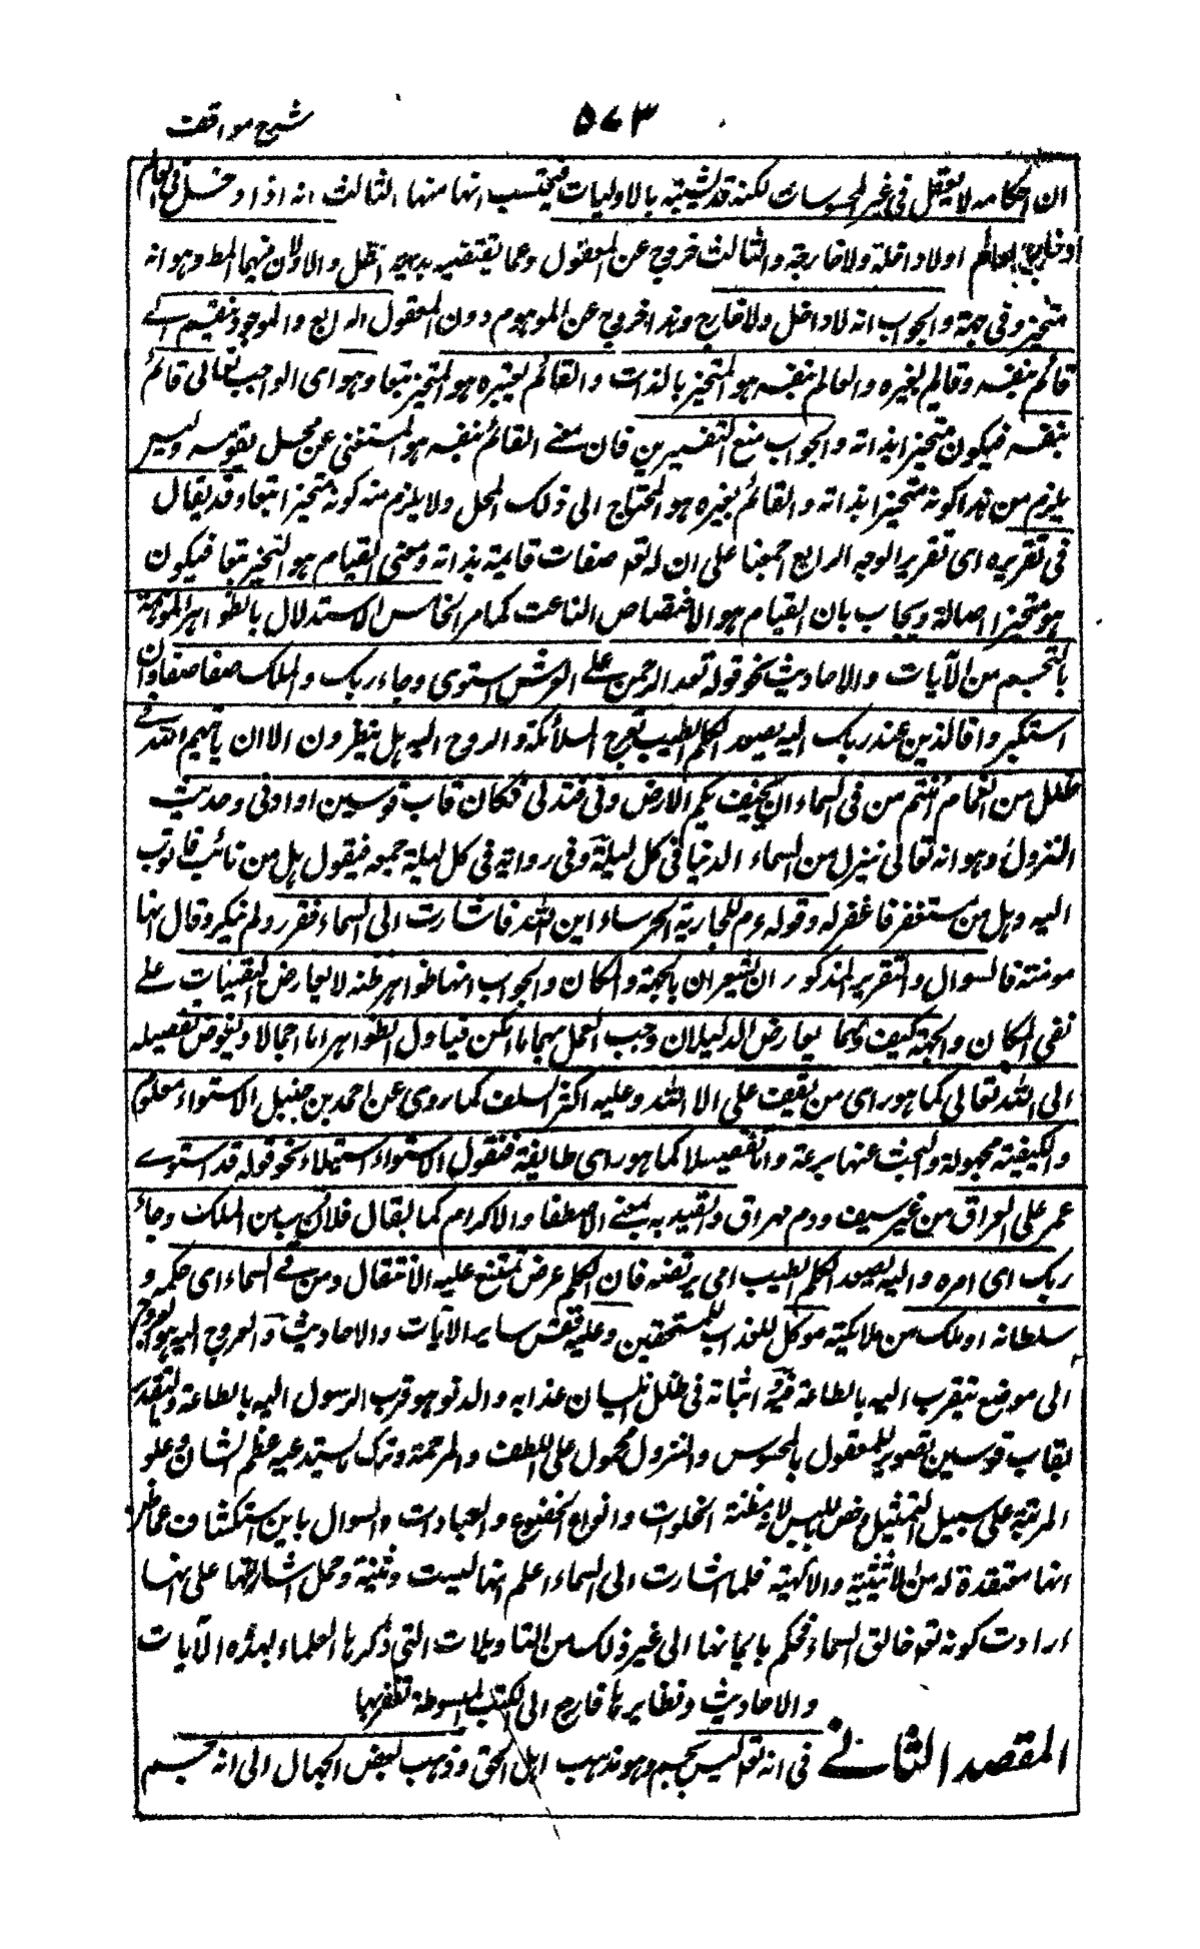 ۵۷۳
شرح مواقف
ان احكامه لا يعقل فى غير المحسوسات لكنه قد تشتبه بالاوليات فيحتسب انها منها الثالث انه اذا دخل فى العالم
او خارج العالم او لا داخلة ولا خارجة والثالث خروج عن المعقول وعما يقتضيه بديهة العقل والاولان فيهما المط وهو انه
متحيز وفى جهة والجواب انه لا داخل ولا خارج وهذا خروج عن الموهوم دون المعقول الرابع والموجود ينقسم الے
قائم بنفسه وقايم بغيره والعالم بنفسه هو المتحيز بالذات والقائم بغيره هو المتحيز تبعا وهو اى الواجب تعالى قائم
بنفسه فيكون متحيزا بذاته والجواب منع التفسيرين فان معنے القائم بنفسه هو المستغنى عن محل يقومه وليس
يلزم من هذا كونه متحيزا بذاته والقائم بغيره هو المحتاج الى ذلك المحل ولا يلزم منه كونه متحيزا تبعا وقد يقال
فى تقريره اى تقرير الوجه الرابع اجمعنا على ان له تع صفات قايمة بذاته ومعنى القيام هو التحيز تبعا فيكون
هو متحيزا اصالة ويجاب بان القيام هو الاختصاص الناعت كما مر الخامس الاستدلال بالظواهر الموهمة
بالتجسم من الآيات والاحاديث نحو قوله تعه الرحمن علے العرش استوى وجاء ربك والملك صفا صفا وان
استكبروا فالذين عند ربك اليه يصعد الكلم الطيب تعرج الملائكة والروح اليه هل ينظرون الا ان ياتيهم الله فے
ظلل من الغمام ءامنتم من فى السماء ان يخسف بكم الارض دنى فتدلى فكان قاب قوسين او ادنى وحديث
النزول وهو انه تعالى ينزل من السماء الدنيا فى كل ليلة وفى رواية فى كل ليلة جمعه فيقول هل من تائب فاتوب
اليه وهل من مستغفر فاغفر له وقوله عم للجارية الخرساء اين الله فاشارت الى السماء فقرر ولم ينكر وقال انها
مومنة فالسوال والتقرير المذكوران يشعران بالجهة والمكان والجواب انها ظواهر ظنه لا يعارض اليقينات علے
نفى المكان والجهة كيف ومهما يعارض الدليلان وجب العمل بهما ما امكن فياول الظواهر اما اجمالا ويفوض تفصيله
الى الله تعالى كما هو راى من يقف على الا الله وعليه اكثر السلف كما روى عن احمد بن حنبل الاستواء معلوم
والكيفية مجهولة والبحث عنها بدعة واما تفصيلا كما هو راى طايفة فنقول الاستواء استيلاء نحو قوله قد استوے
عمرو على العراق من غير سيف ودم مهراق والعنديه بمعنے الاصطفا والاكرام كما يقال فلان قريب من الملك وجاء
ربك اى امره واليه يصعد الكلم الطيب اى يرتضه فان الكلم عرض يمتنع عليه الانتقال ومن فے السماء اى حكمه و
سلطانه او ملك من ملائكته موكل للعذاب للمستحقين وعليه فقس ساير الآيات والاحاديث والعروج اليه هو العروج
الى موضع يتقرب اليه بالطاعة فيه واتيانه فى ظلل اتيان عذابه والدنو هو قرب الرسول اليه بالطاعة والتقدير
بقاب قوسين تصوير للمعقول بالمحسوس والنزول محمول على اللطف والمرحمة وترك ما يستدعيه عظم الشان وعلو
المرتبة على سبيل التمثيل وخص بالليل لانه مظنة الخلوات وانواع الخضوع والعبادات والسوال باين استكشاف عما ظن
انها معتقدة له من الاثينية والالهية فلما اشارت الى السماء اعلم انها ليست وثنية وحمل اشارتها على انها
ارادت كونه تع خالق السماء فحكم بايمانها الى غير ذلك من التاويلات التى ذكرها العلماء لهذه الآيات
والاحاديث ونظايرها فارجع الى الكتب المبسوطة تظفر بها
المقصد الثانے فى انه تع ليس بجسم وهو مذهب اهل الحق وذهب بعض الجهال الى انه جسم